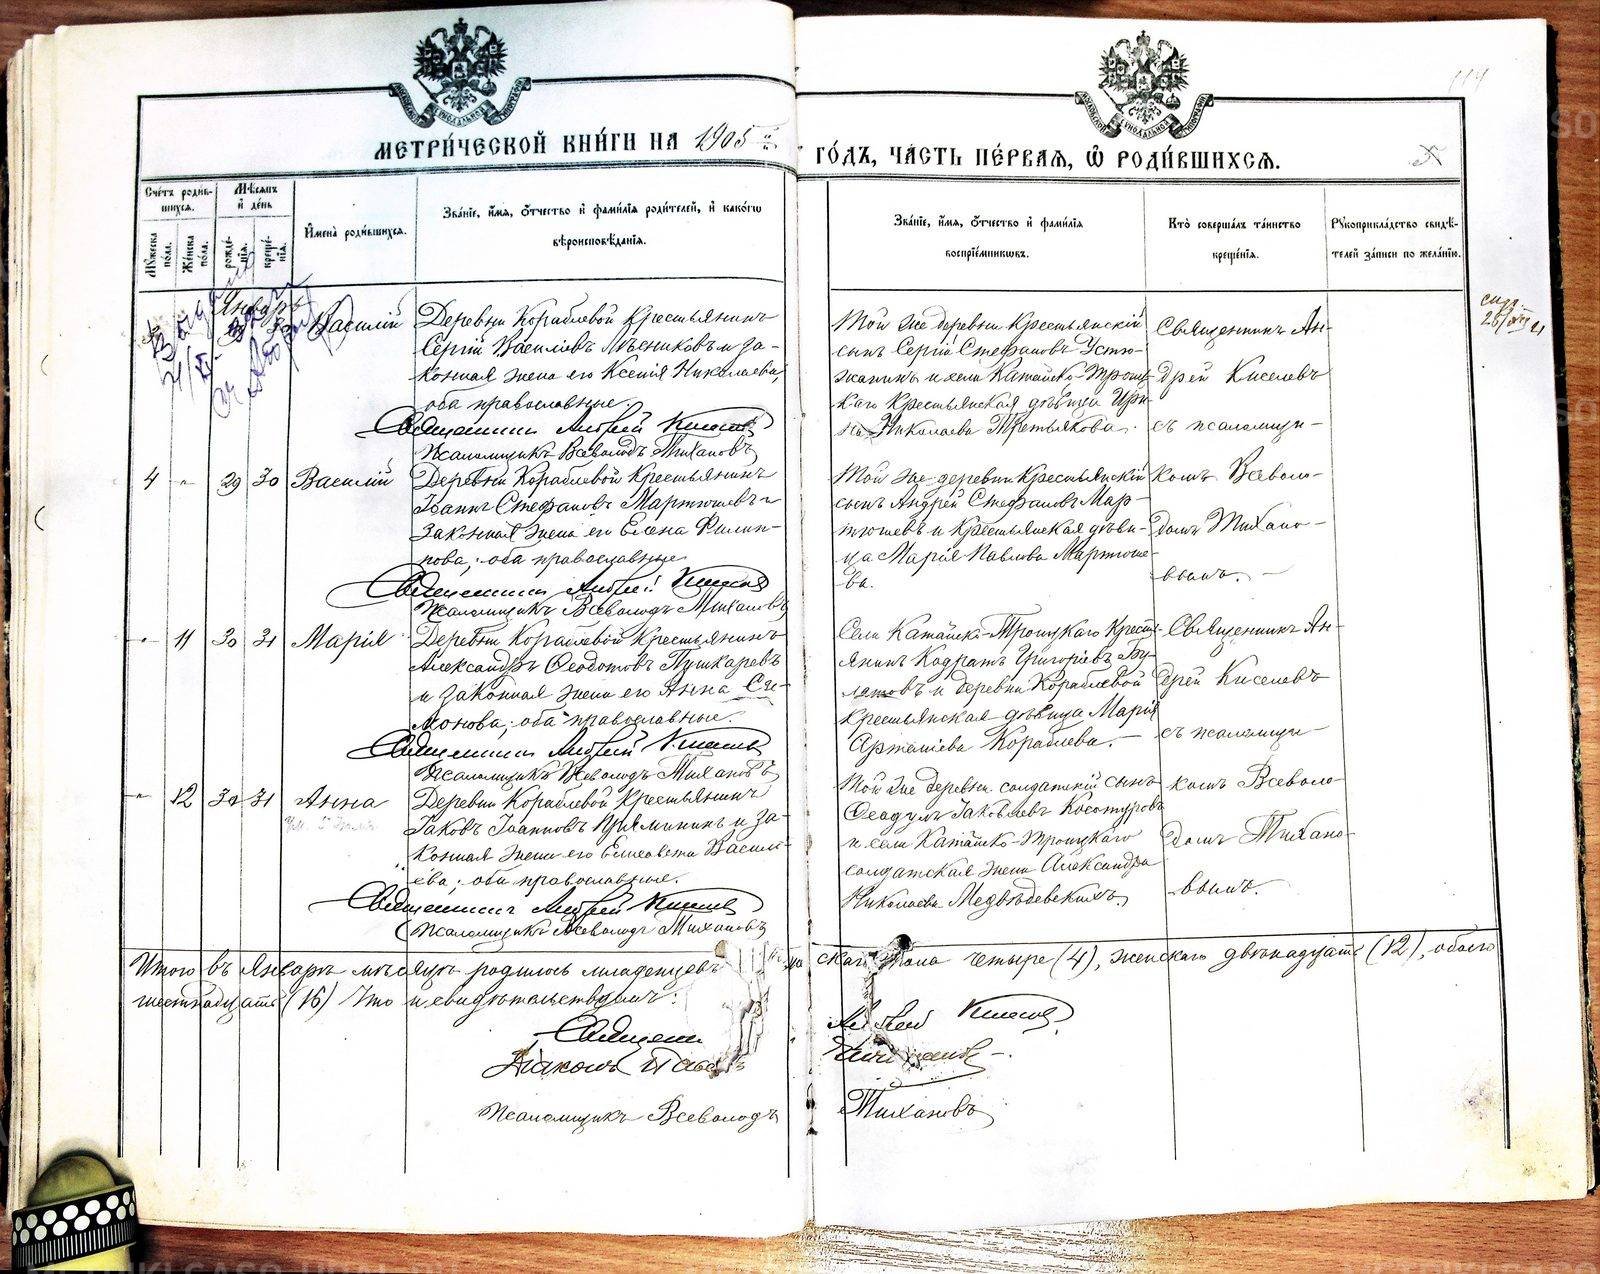 МЕТРИ́ЧЕСКОЙ КНИ́ГИ НА 1905й
ГО́ДЪ, ЧА́СТЬ ПЕ́РВАЯ, Ѡ РОДИ́ВШИХСЯ.
119
Сче́тъ роди́в-
шихся.
Мѣ́сяцъ
и́ де́нь
Мꙋ́жеска
по́ла.
Же́нска
по́ла.
рожде́-
нїя.
креще́-
нїя.
И҆мена̀ роди́вшихся.
Зва́нїе, и҆́мя, ѻ҆́тчество и҆ фами́лїя роди́телей, и҆ како́гѡ
вѣроисповѣ́данїя.
Зва́нїе, и҆́мя, ѻ҆́тчество и҆ фами́лїя
воспрїе́мникѡвъ.
Кто̀ соверша́лъ та́инство
креще́нїя.
Рꙋкоприкла́дство свидѣ́-
телей за́писи по жела́нїю.
Январь
Василій
Деревни Кораблевой Крестьянинъ
Сергій Василіевъ и за-
конная жена его Ксенія Николаева,
оба православные.
Священникъ Андрей Киселевъ
Псаломщикъ Всеволодъ Тихановъ
Той же деревни Крестьянскій
сынъ Сергій Стефановъ Устю-
жанинъ и села Катайско-Троиц-
каго Крестьянская дѣвица Ири-
на Николаева Третьякова.
Священникъ Ан-
дрей Киселевъ
съ псаломщи-
4 " 29 30 Василій
Деревни Кораблевой Крестьянинъ
Іоаннъ Стефановъ Мартюшевъ и
законная жена его Елена Филип-
пова; оба православные.
Священникъ Андрей Киселевъ
Псаломщикъ Всеволодъ Тихановъ
Той же деревни Крестьянскій
сынъ Андрей Стефановъ Мар-
тюшевъ и Крестьянская дѣви-
ца Марія Павлова Мартюше-
ва.
комъ Всеволо-
домъ Тихано-
вымъ.
" 11 30 31 Марія
Деревни Кораблевой Крестьянинъ
Александръ Ѳеодотовъ Пушкаревъ
и законная жена его Анна Си-
монова; оба православные.
Священникъ Андрей Киселевъ
Псаломщикъ Всеволодъ Тихановъ
Села Катайско-Троицкаго Кресть-
янинъ Кодратъ Григоріевъ Бу-
латовъ и деревни Кораблевой
Крестьянская дѣвица Марія
Артеміева Кораблева.
Священникъ Ан-
дрей Киселевъ
съ псаломщи-
" 12 30 31 Анна
Деревни Кораблевой Крестьянинъ
Іаковъ Іоанновъ и за-
конная жена его Елисавета Василі-
ева; оба православные.
Священникъ Андрей Киселевъ
Псаломщикъ Всеволодъ Тихановъ
Той же деревни солдатскій сынъ
Ѳеодулъ Іаковлевъ Косотуровъ
и села Катайско-Троицкаго
солдатская жена Александра
Николаева Медвѣдевскихъ
комъ Всеволо-
домъ Тихано-
вымъ.
Итого въ Январѣ мѣсяцѣ родилось младенцевъ скаго пола четыре (4), женскаго двѣнадцать (12), обоего
шестнадцать (16) Что и свидѣтельствуемъ:
Священ Андрей Киселевъ
Діаконъ
Псаломщикъ Всеволодъ Тихановъ